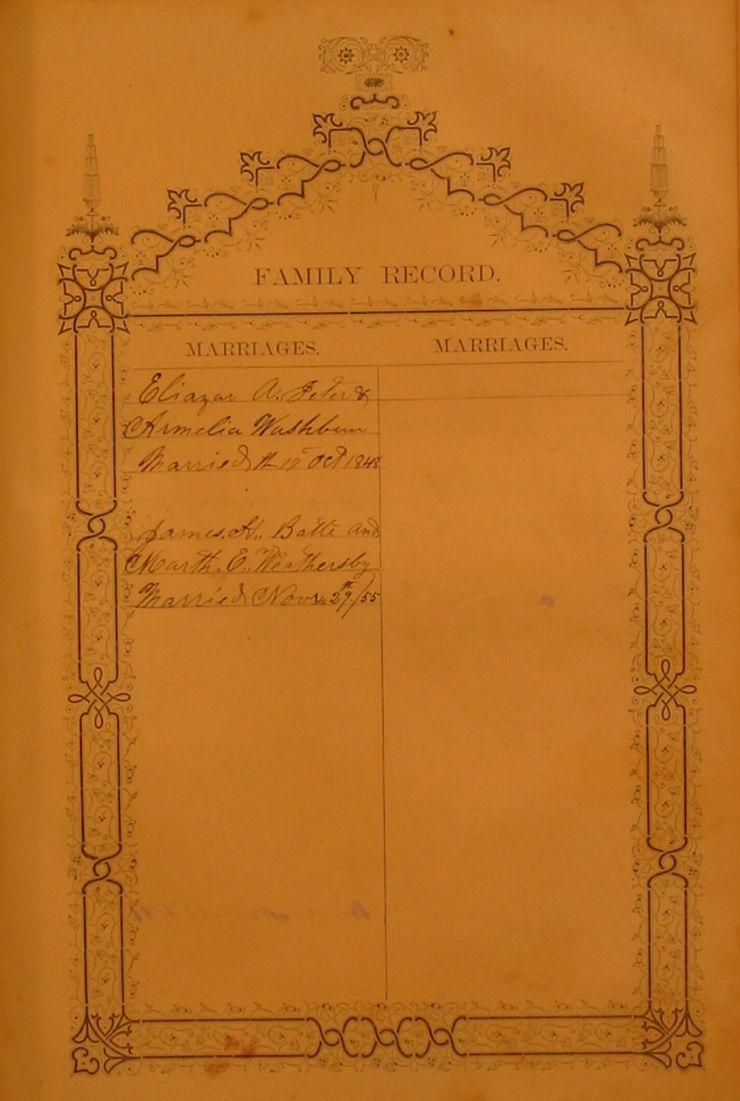 FAMILY RECORD.
MARRIAGES.
MARRIAGES.
Eliazar A. Jeter &
Armelia Washburn
Married th Oct 1848
James H. Batte and
Marth. E. Weathersby
Married Novr. 29th/55